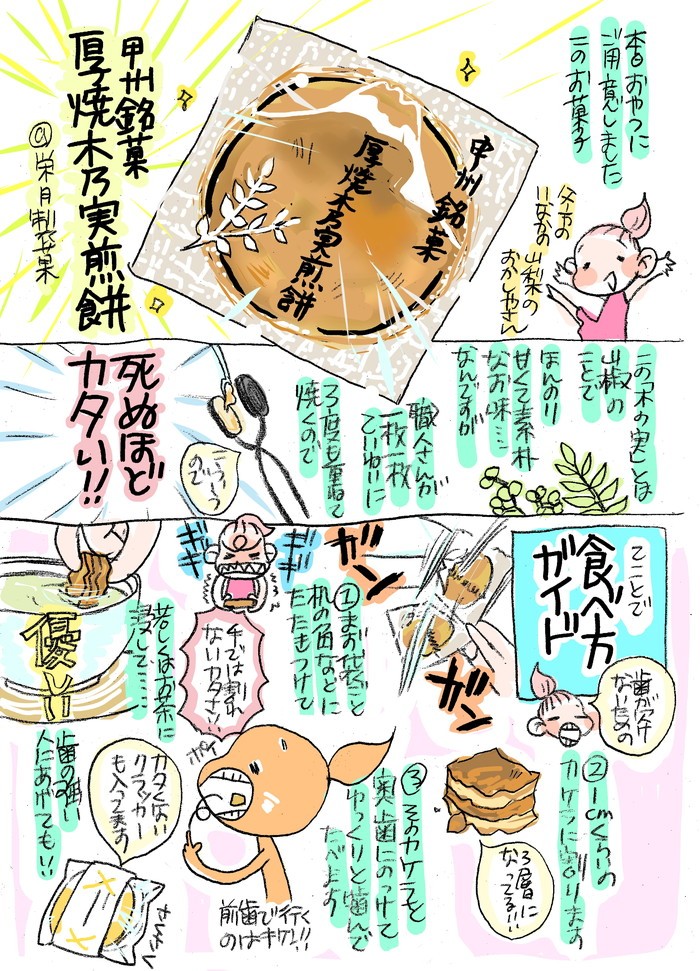 本日おやつに
ご用意しました
このお菓子
父方の
いなかの山梨の
おかしやさん
甲州銘菓
厚焼木乃実煎餅
甲州銘菓
厚焼木乃実煎餅
@栄月制菓
この「木の実」とは
山椒の
ことで
ほんのり
甘くて素朴
なお味…
なんですが
職人さんが
一枚一枚
ていねいに
3度も重ねて
焼くので
こういう
ので
死ぬほど
カタい!!
てことで
食べ方
ガイド
歯が欠け
ないための
ガン
ガン
①まお袋ごと
机の角などに
たたきつけて
ギギ
ギギ
手では割れ
ないカタさ!!
若しくはお茶に
浸して……
優しい
②1cmくらいの
カケラに割ります
3層に
なってる!!
③そのカケラを
奥歯にのっけて
ゆっくりと噛んで
たべます
ポイ
前歯で行く
のはキケン!!
歯の強い
人にあげても!!
カタくない
クラッカー
も入ってます
さくさく